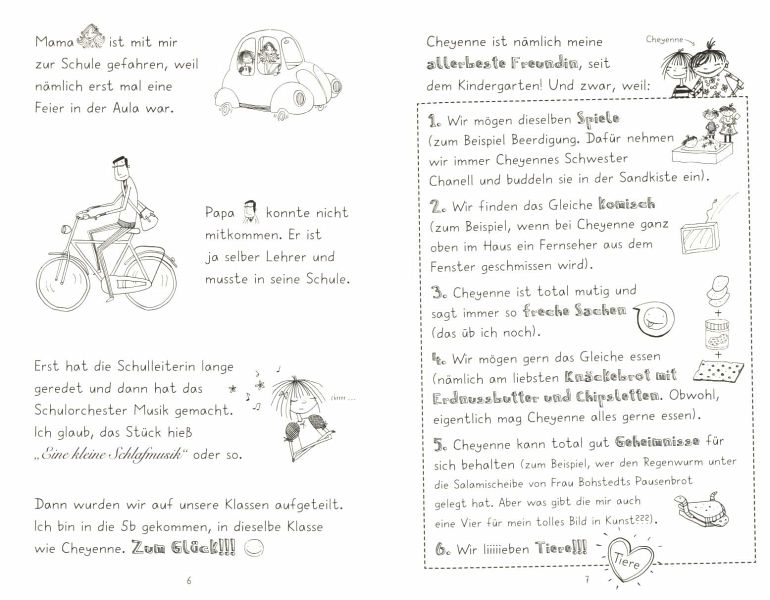 Mama ist mit mir
zur Schule gefahren, weil
nämlich erst mal eine
Feier in der Aula war.
Papa konnte nicht
mitkommen. Er ist
ja selber Lehrer und
musste in seine Schule.
Erst hat die Schulleiterin lange
geredet und dann hat das
Schulorchester Musik gemacht.
Ich glaub, das Stück hieß
„Eine kleine Schlafmusik“ oder so.
Dann wurden wir auf unsere Klassen aufgeteilt.
Ich bin in die 5b gekommen, in dieselbe Klasse
wie Cheyenne. Zum Glück!!!
6
Cheyenne ist nämlich meine
allerbeste Freundin, seit
dem Kindergarten! Und zwar, weil:
Cheyenne
1. Wir mögen dieselben Spiele
(zum Beispiel Beerdigung. Dafür nehmen
wir immer Cheyennes Schwester
Chanell und buddeln sie in der Sandkiste ein).
2. Wir finden das Gleiche komisch
(zum Beispiel, wenn bei Cheyenne ganz
oben im Haus ein Fernseher aus dem
Fenster geschmissen wird).
3. Cheyenne ist total mutig und
sagt immer so freche Sachen
(das üb ich noch).
4. Wir mögen gern das Gleiche essen
(nämlich am liebsten Knäckebrot mit
Erdnussbutter und Chipsletten. Obwohl,
eigentlich mag Cheyenne alles gerne essen).
+
+
5. Cheyenne kann total gut Geheimnisse für
sich behalten (zum Beispiel, wer den Regenwurm unter
die Salamischeibe von Frau Bohstedts Pausenbrot
gelegt hat. Aber was gibt die mir auch
eine Vier für mein tolles Bild in Kunst???).
6. Wir liiiiieben Tiere!!!
Tiere
7